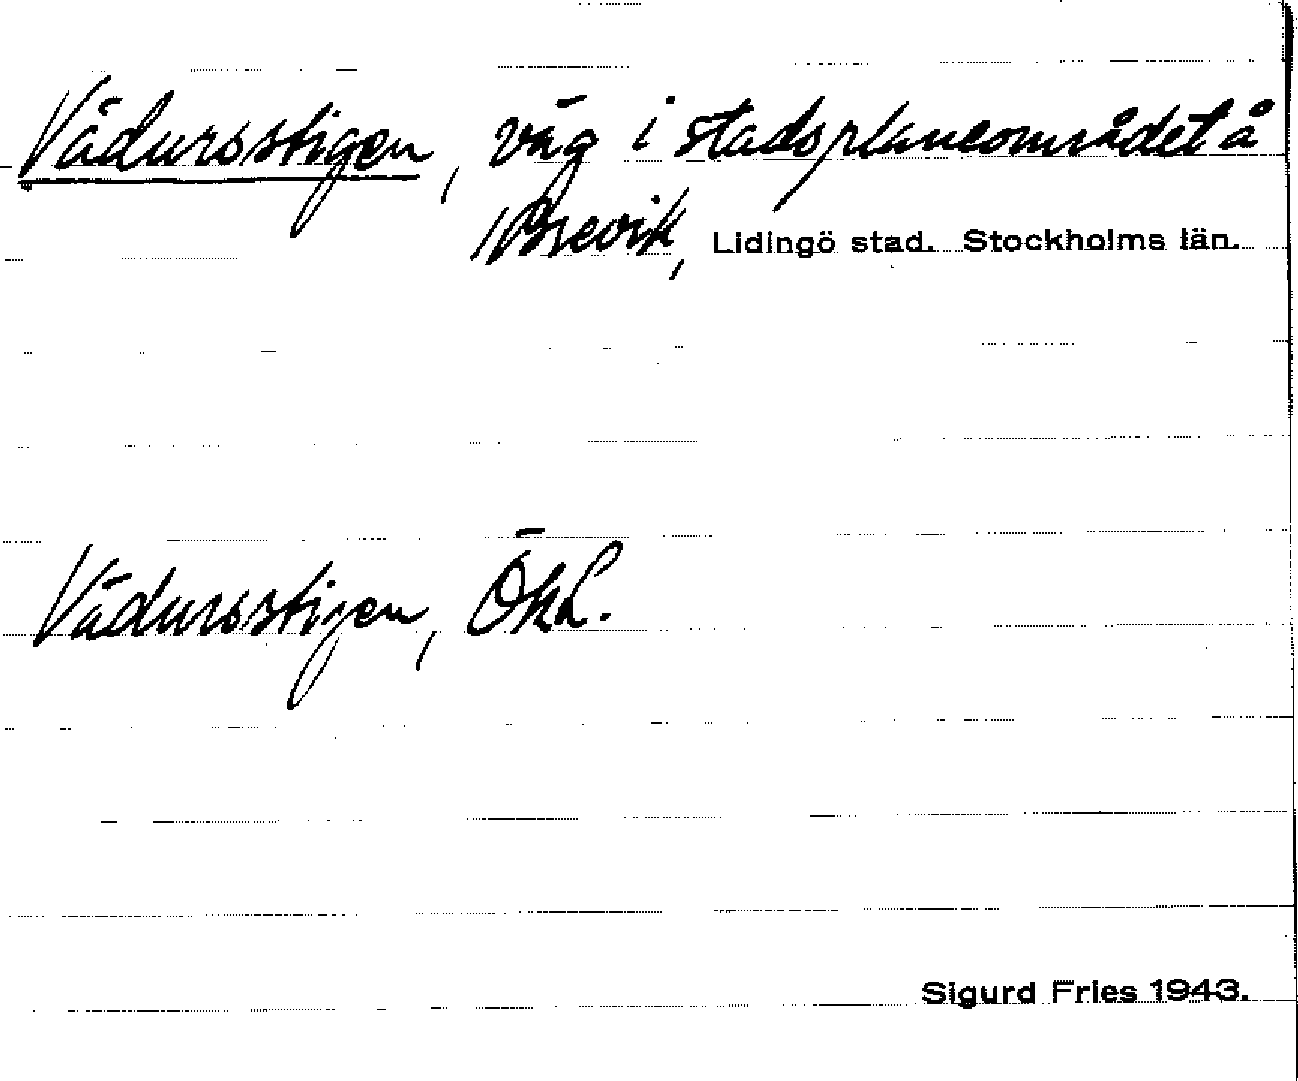 Vädursstigen, väg i stadsplaneområdet å
Brevik, Lidingö stad. Stockholms län.
Vädursstigen, ÖkL.
Sigurd Fries 1943.